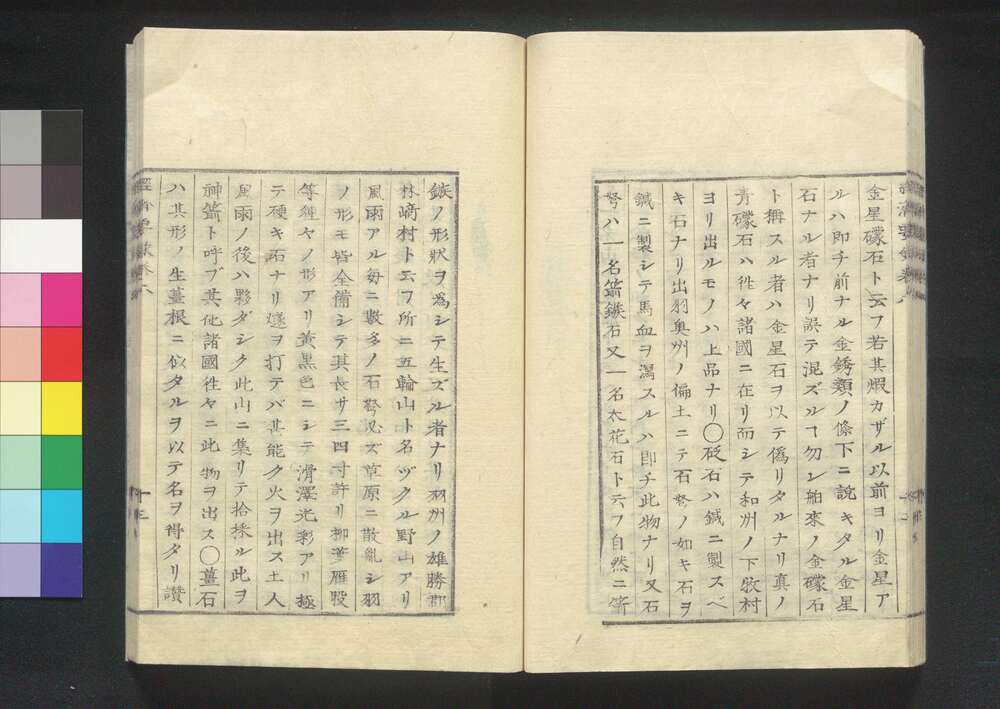 金星礞石ト云フ若其煆カザル以前ヨリ金星ア
ルハ即チ前ナル金銹類ノ條下ニ説キタル金星
石ナル者ナリ誤テ混ズルヿ勿レ舶來ノ金礞石
ト稱スル者ハ金星石ヲ以テ僞リタルナリ真ノ
青礞石ハ徃々諸國ニ在リ而シテ和州ノ下牧村
ヨリ出ルモノハ上品ナリ〇砭石ハ鍼ニ製スベ
キ石ナリ出羽奥州ノ偏土ニテ石砮ノ如キ石ヲ
鍼ニ製シテ馬血ヲ瀉スルハ即チ此物ナリ又石
砮ハ一名箭鏃石又一名木花石ト云フ自然ニ箭
鏃ノ形狀ヲ爲シテ生ズル者ナリ羽州ノ雄勝郡
林﨑村ト云フ所ニ五輪山ト名ヅクル野山アリ
風雨アル毎ニ數多ノ石砮必ズ草原ニ散亂シ羽
ノ形モ皆全備シテ其長サ三四寸許リ柳葉雁股
等種々ノ形アリ黄黒色ニシテ滑澤光彩アリ極
テ硬キ石ナリ燧ヲ打テバ甚能ク火ヲ出ス土人
風雨ノ後ハ夥ダシク此山ニ集リテ拾採ル此ヲ
神箭ト呼ブ其他諸國徃々ニ此物ヲ出ス〇薑石
ハ其形ノ生薑根ニ似タルヲ以テ名ヲ得タリ讃
十三